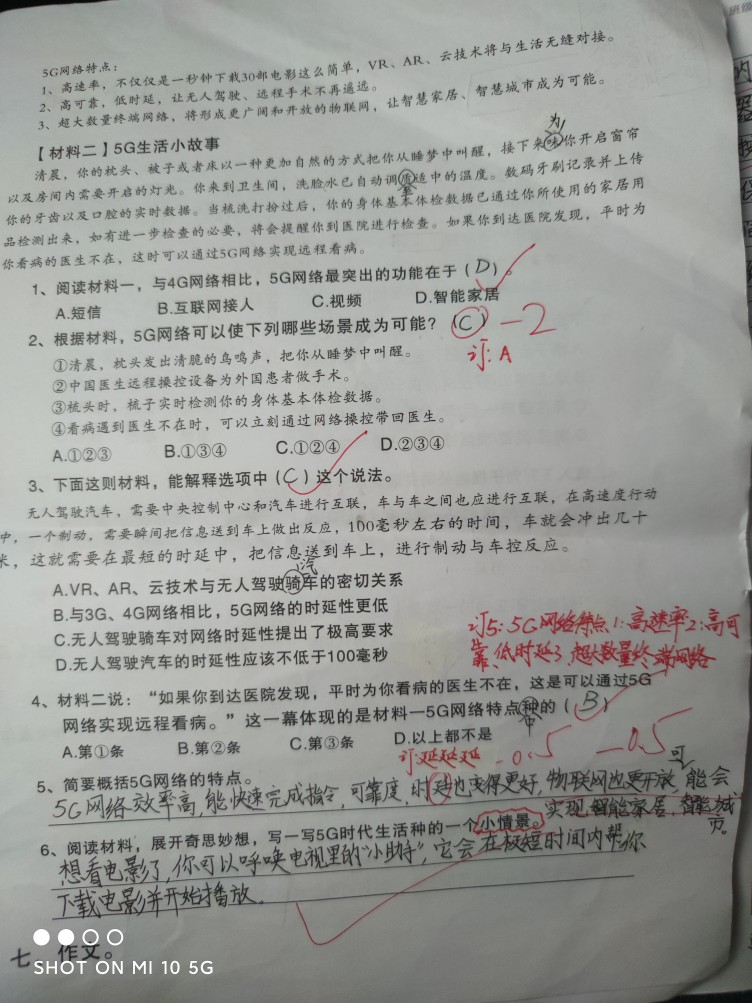 5G网络特点：
1、高速率，不仅仅是一秒钟下载30部电影这么简单，VR、AR、云技术将与生活无缝对接。
2、高可靠，低时延，让无人驾驶、远程手术不再遥远。
3、超大数量终端网络，将形成更广阔和开放的物联网，让智慧家居、智慧城市成为可能。
【材料二】5G生活小故事
为
清晨，你的枕头、被子或者床以一种更加自然的方式把你从睡梦中叫醒，接下来味你开启窗帘
以及房间内需要开启的灯光。你来到卫生间，洗脸水已自动调质适中的温度。数码牙刷记录并上传
至
你的牙齿以及口腔的实时数据。当梳洗打扮过后，你的身体基本体检数据已通过你所使用的家居用
品检测出来，如有进一步检查的必要，将会提醒你到医院进行检查。如果你到达医院发现，平时为
你看病的医生不在，这时可以通过5G网络实现远程看病。
1、阅读材料一，与4G网络相比，5G网络最突出的功能在于（D）。
A.短信 B.互联网接人 C.视频 D.智能家居
2、根据材料，5G网络可以使下列哪些场景成为可能？（C） -2
订: A
①清晨，枕头发出清脆的鸟鸣声，把你从睡梦中叫醒。
②中国医生远程操控设备为外国患者做手术。
③梳头时，梳子实时检测你的身体基本体检数据。
④看病遇到医生不在时，可以立刻通过网络操控带回医生。
A.①②③ B.①③④ C.①②④ D.②③④
3、下面这则材料，能解释选项中（C）这个说法。
无人驾驶汽车，需要中央控制中心和汽车进行互联，车与车之间也应进行互联，在高速度行动
中，一个制动，需要瞬间把信息送到车上做出反应，100毫秒左右的时间，车就会冲出几十
米，这就需要在最短的时延中，把信息送到车上，进行制动与车控反应。
汽
A.VR、AR、云技术与无人驾驶骑车的密切关系
B.与3G、4G网络相比，5G网络的时延性更低
C.无人驾驶骑车对网络时延性提出了极高要求
D.无人驾驶汽车的时延性应该不低于100毫秒
订5: 5G网络特点 1:高速率 2:高可
靠、低时延 3、超大数量终端网络
4、材料二说：“如果你到达医院发现，平时为你看病的医生不在，这是可以通过5G
网络实现远程看病。”这一幕体现的是材料一5G网络特点种的（B）
中
A.第①条 B.第②条 C.第③条 D.以上都不是
订:延延延 -0.5 -0.5
5、简要概括5G网络的特点。
可
5G网络效率高，能快速完成指令，可靠度，时延也变得更好，物联网也更开放，能会
实现智能家居，智能城
市。
6、阅读材料，展开奇思妙想，写一写5G时代生活种的一个小情景。
想看电影了，你可以呼唤电视里的“小助手”，它会在极短时间内帮你
下载电影并开始播放。
七、作文。
SHOT ON MI 10 5G
班级